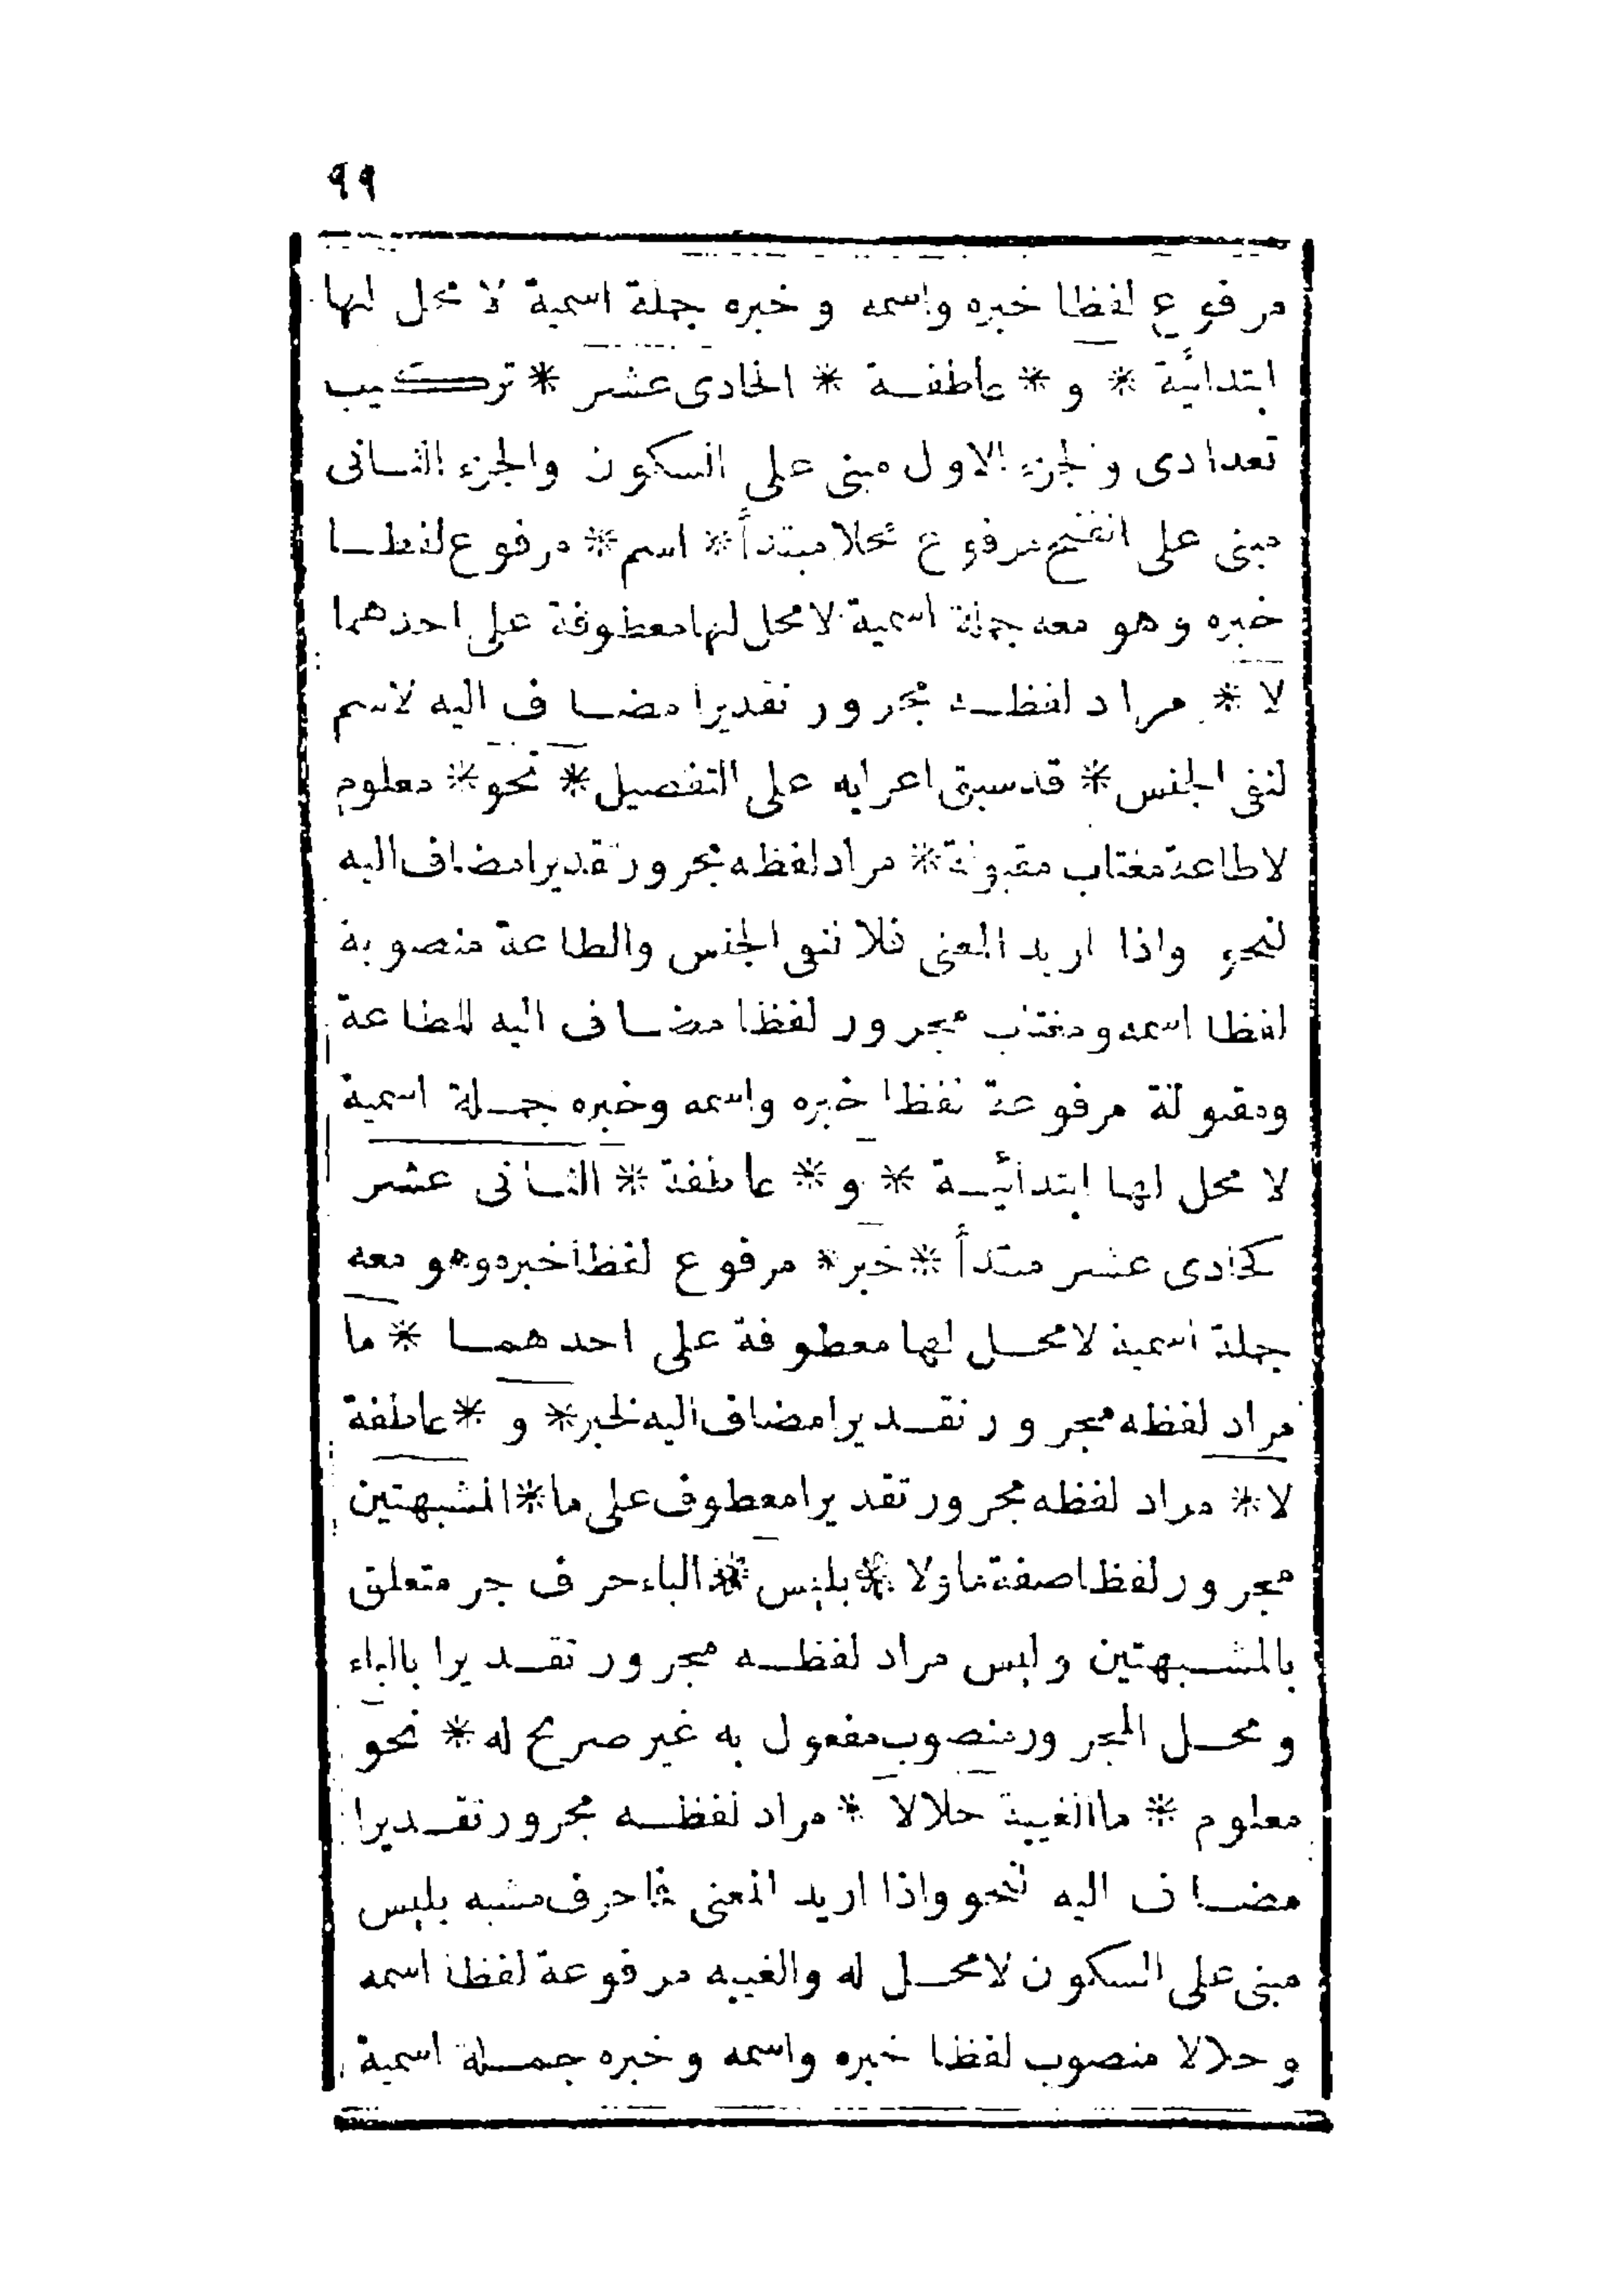 ٩٩
مرفوع لفظا خبره واسمه وخبره جملة اسمية لا محل لها
ابتدائية * و * عاطفة * الحادى عشر * تركيب
تعدادى والجزء الاول مبنى على السكون والجزء الثانى
مبنى على الفتح مرفوع محلا مبتدأ * اسم * مرفوع لفظا
خبره وهو معه جملة اسمية لا محل لها معطوفة على احدهما
لا * مراد لفظه مجرور تقديرا مضاف اليه لاسم
لنفى الجنس * قد سبق اعرابه على التفصيل * نحو * معلوم
لا طاعة مغتاب مقبولة * مراد لفظه مجرور تقديرا مضاف اليه
لنحو واذا اريد المعنى فلا لنفى الجنس والطاعة منصوبة
لفظا اسمه ومغتاب مجرور لفظا مضاف اليه للطاعة
ومقبولة مرفوعة لفظا خبره واسمه وخبره جملة اسمية
لا محل لها ابتدائية * و * عاطفة * الثانى عشر
كحادى عشر مبتدأ * خبر * مرفوع لفظا خبره وهو معه
جملة اسمية لا محل لها معطوفة على احدهما * ما
مراد لفظه مجرور تقديرا مضاف اليه لخبر * و * عاطفة
لا * مراد لفظه مجرور تقديرا معطوف على ما * المشبهتين
مجرور لفظا صفة ما ولا * بليس * الباء حرف جر متعلق
بالمشبهتين وليس مراد لفظه مجرور تقديرا بالباء
ومحل المجرور منصوب مفعول به غير صريح له * نحو
معلوم * ما الغيبة حلالا * مراد لفظه مجرور تقديرا
مضاف اليه لنحو واذا اريد المعنى فما حرف مشبه بليس
مبنى على السكون لا محل له والغيبه مرفوعة لفظا اسمه
وحلالا منصوب لفظا خبره واسمه وخبره جملة اسمية